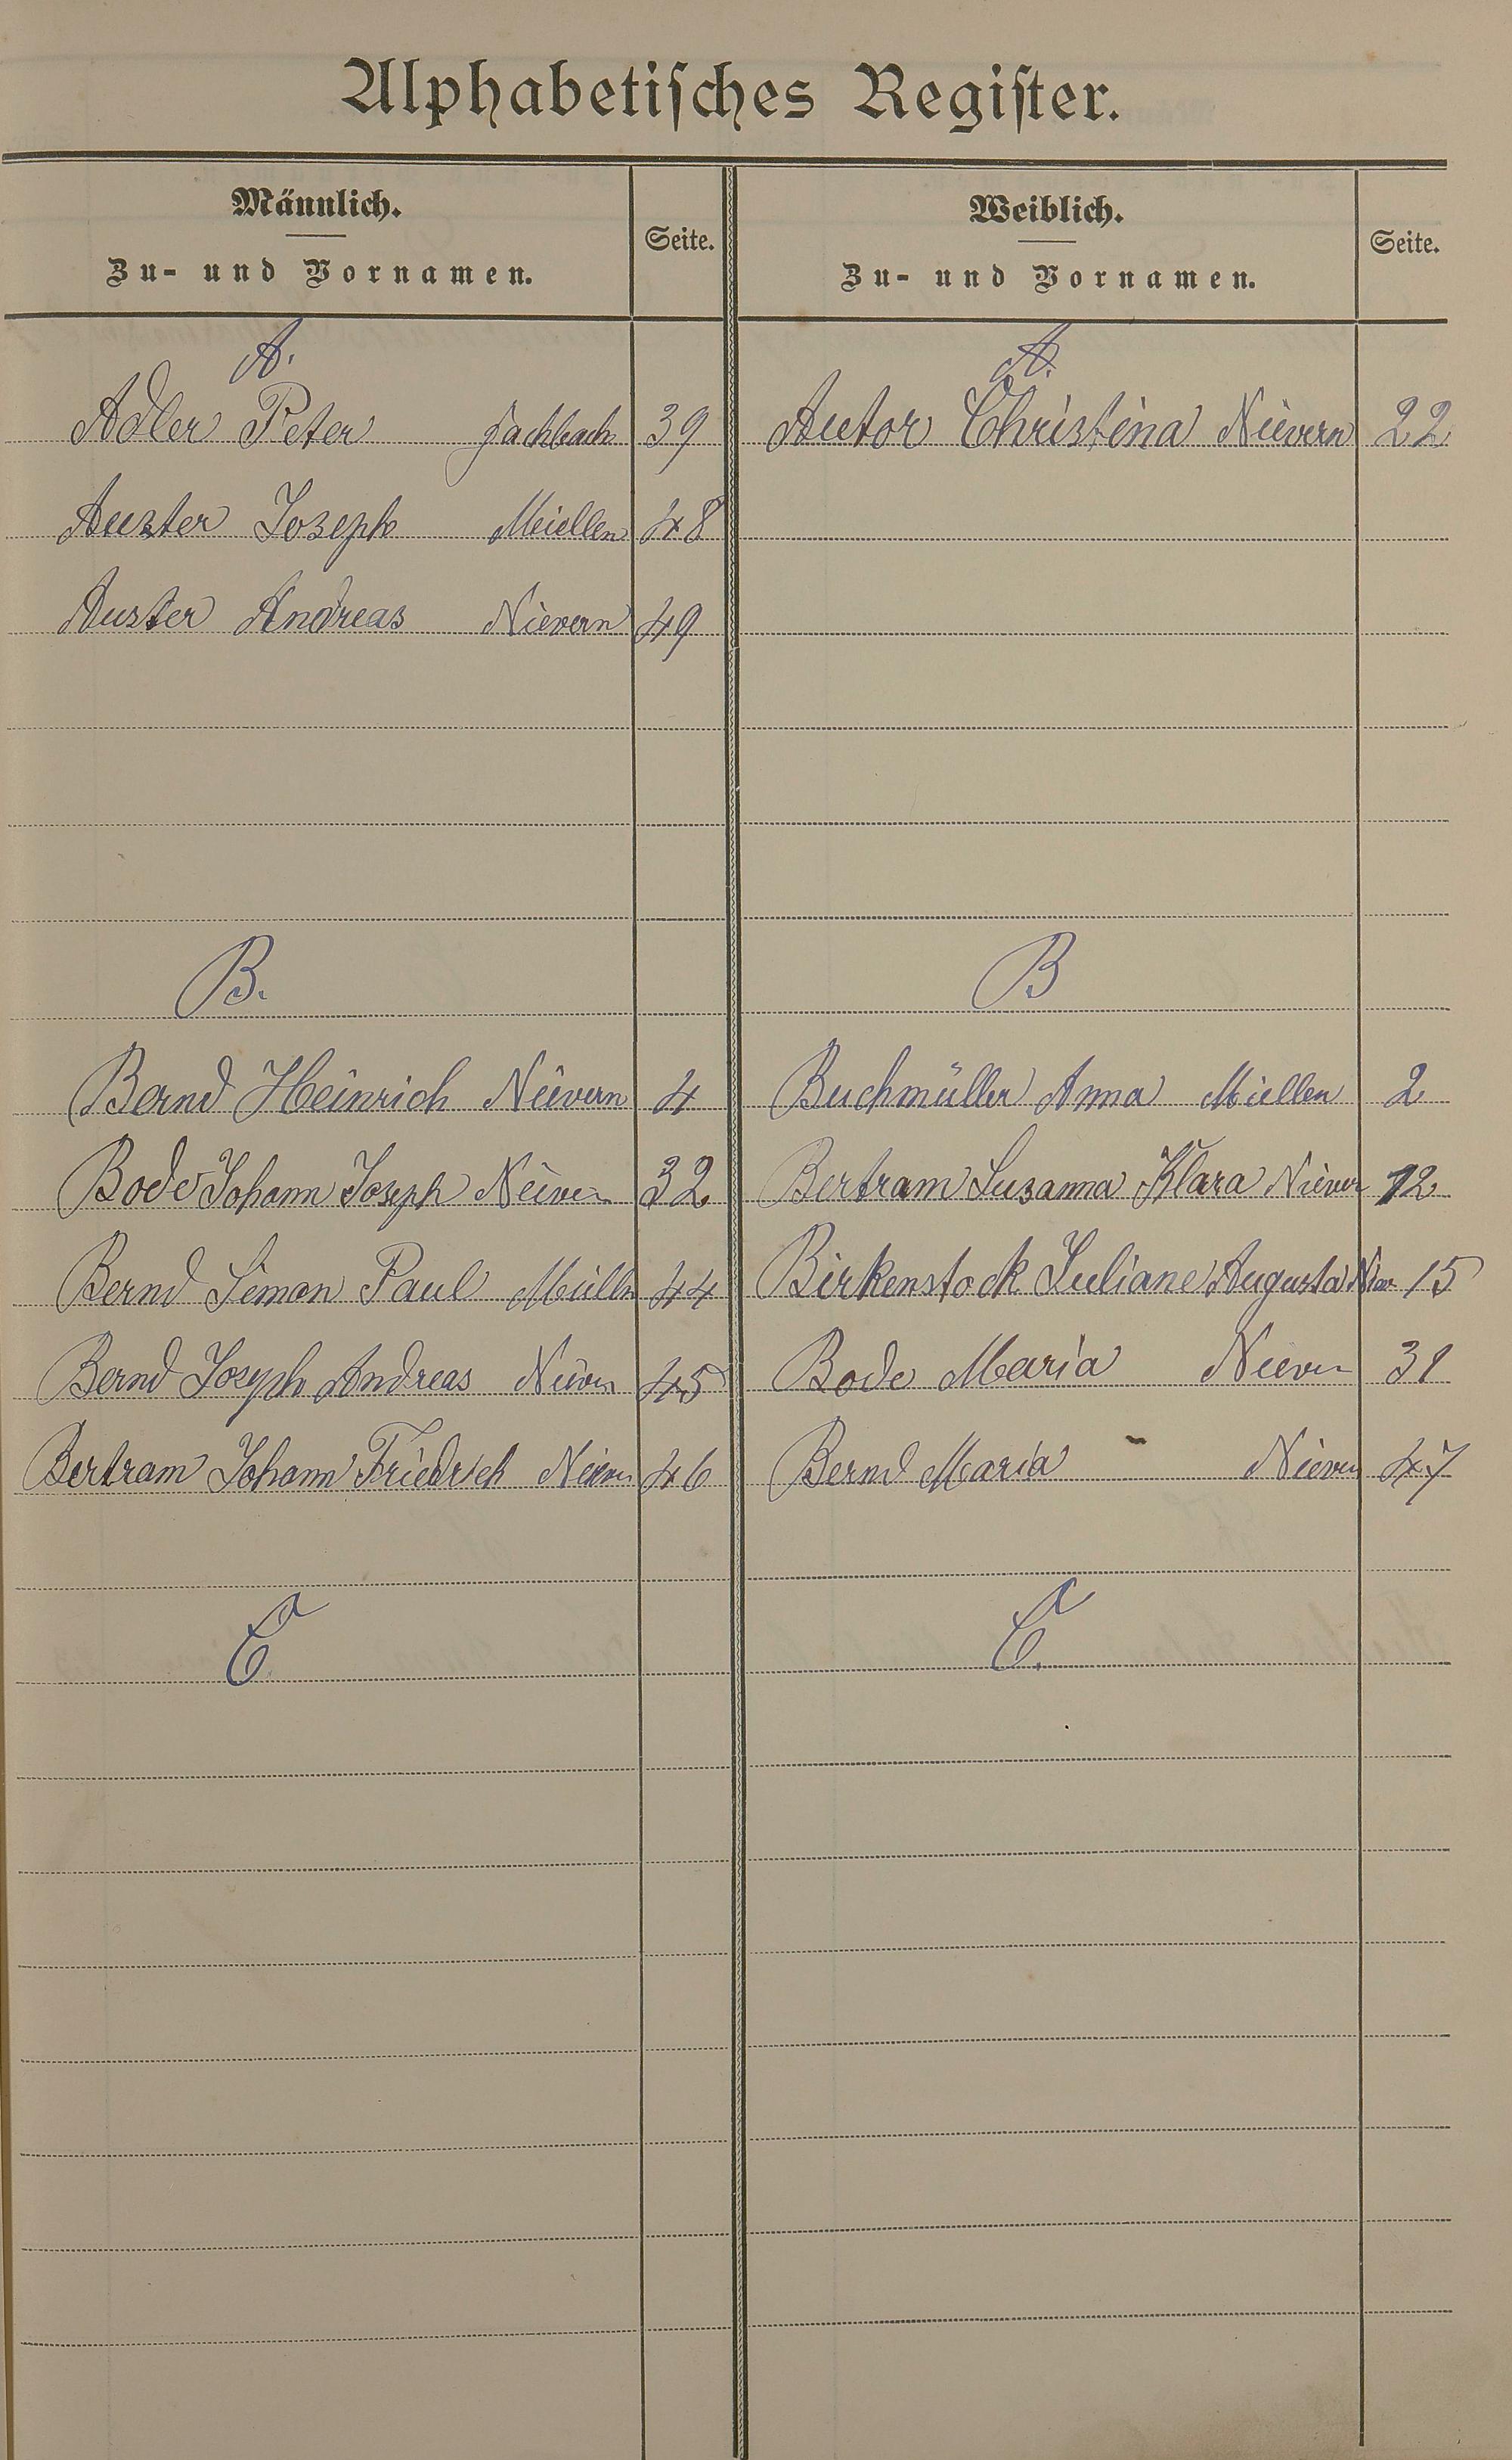 Alphabetisches Register.
Männlich.
Zu- und Vornamen.
Seite.
Weiblich.
Zu- und Vornamen.
Seite.
A.
A.
Adler Peter Fachbach 39
Autor Christina Nievern 22
Auster Joseph Miellen 48
Auster Andreas Nievern 49
B.
B
Bernd Heinrich Nievern 4
Buchmüller Anna Miellen 2
Bode Johann Joseph Nievern 32
Bertram Susanna Klara Nievern 12
Bernd Simon Paul Mielln 44
Birkenstock Juliane Augusta Niev 15
Bernd Joseph Andreas Nievern 45
Bode Maria Nievern 31
Bertram Johann Friedrich Nievern 46
Bernd Maria Nievern 47
C.
C.